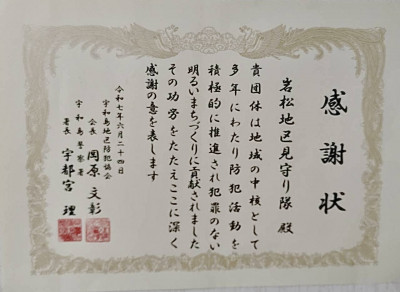 感謝状
岩松地区見守り隊 殿
貴団体は地域の中核として
多年にわたり防犯活動を
積極的に推進され犯罪のない
明るいまちづくりに貢献されました
その功労をたたえここに深く
感謝の意を表します
令和七年六月二十四日
宇和島地区防犯協会
会長 岡原文彰
宇和島警察署
署長 宇都宮 理